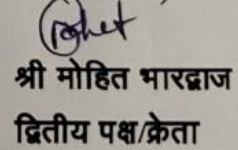 श्री मोहित भारद्वाज
द्वितीय पक्ष/क्रेता